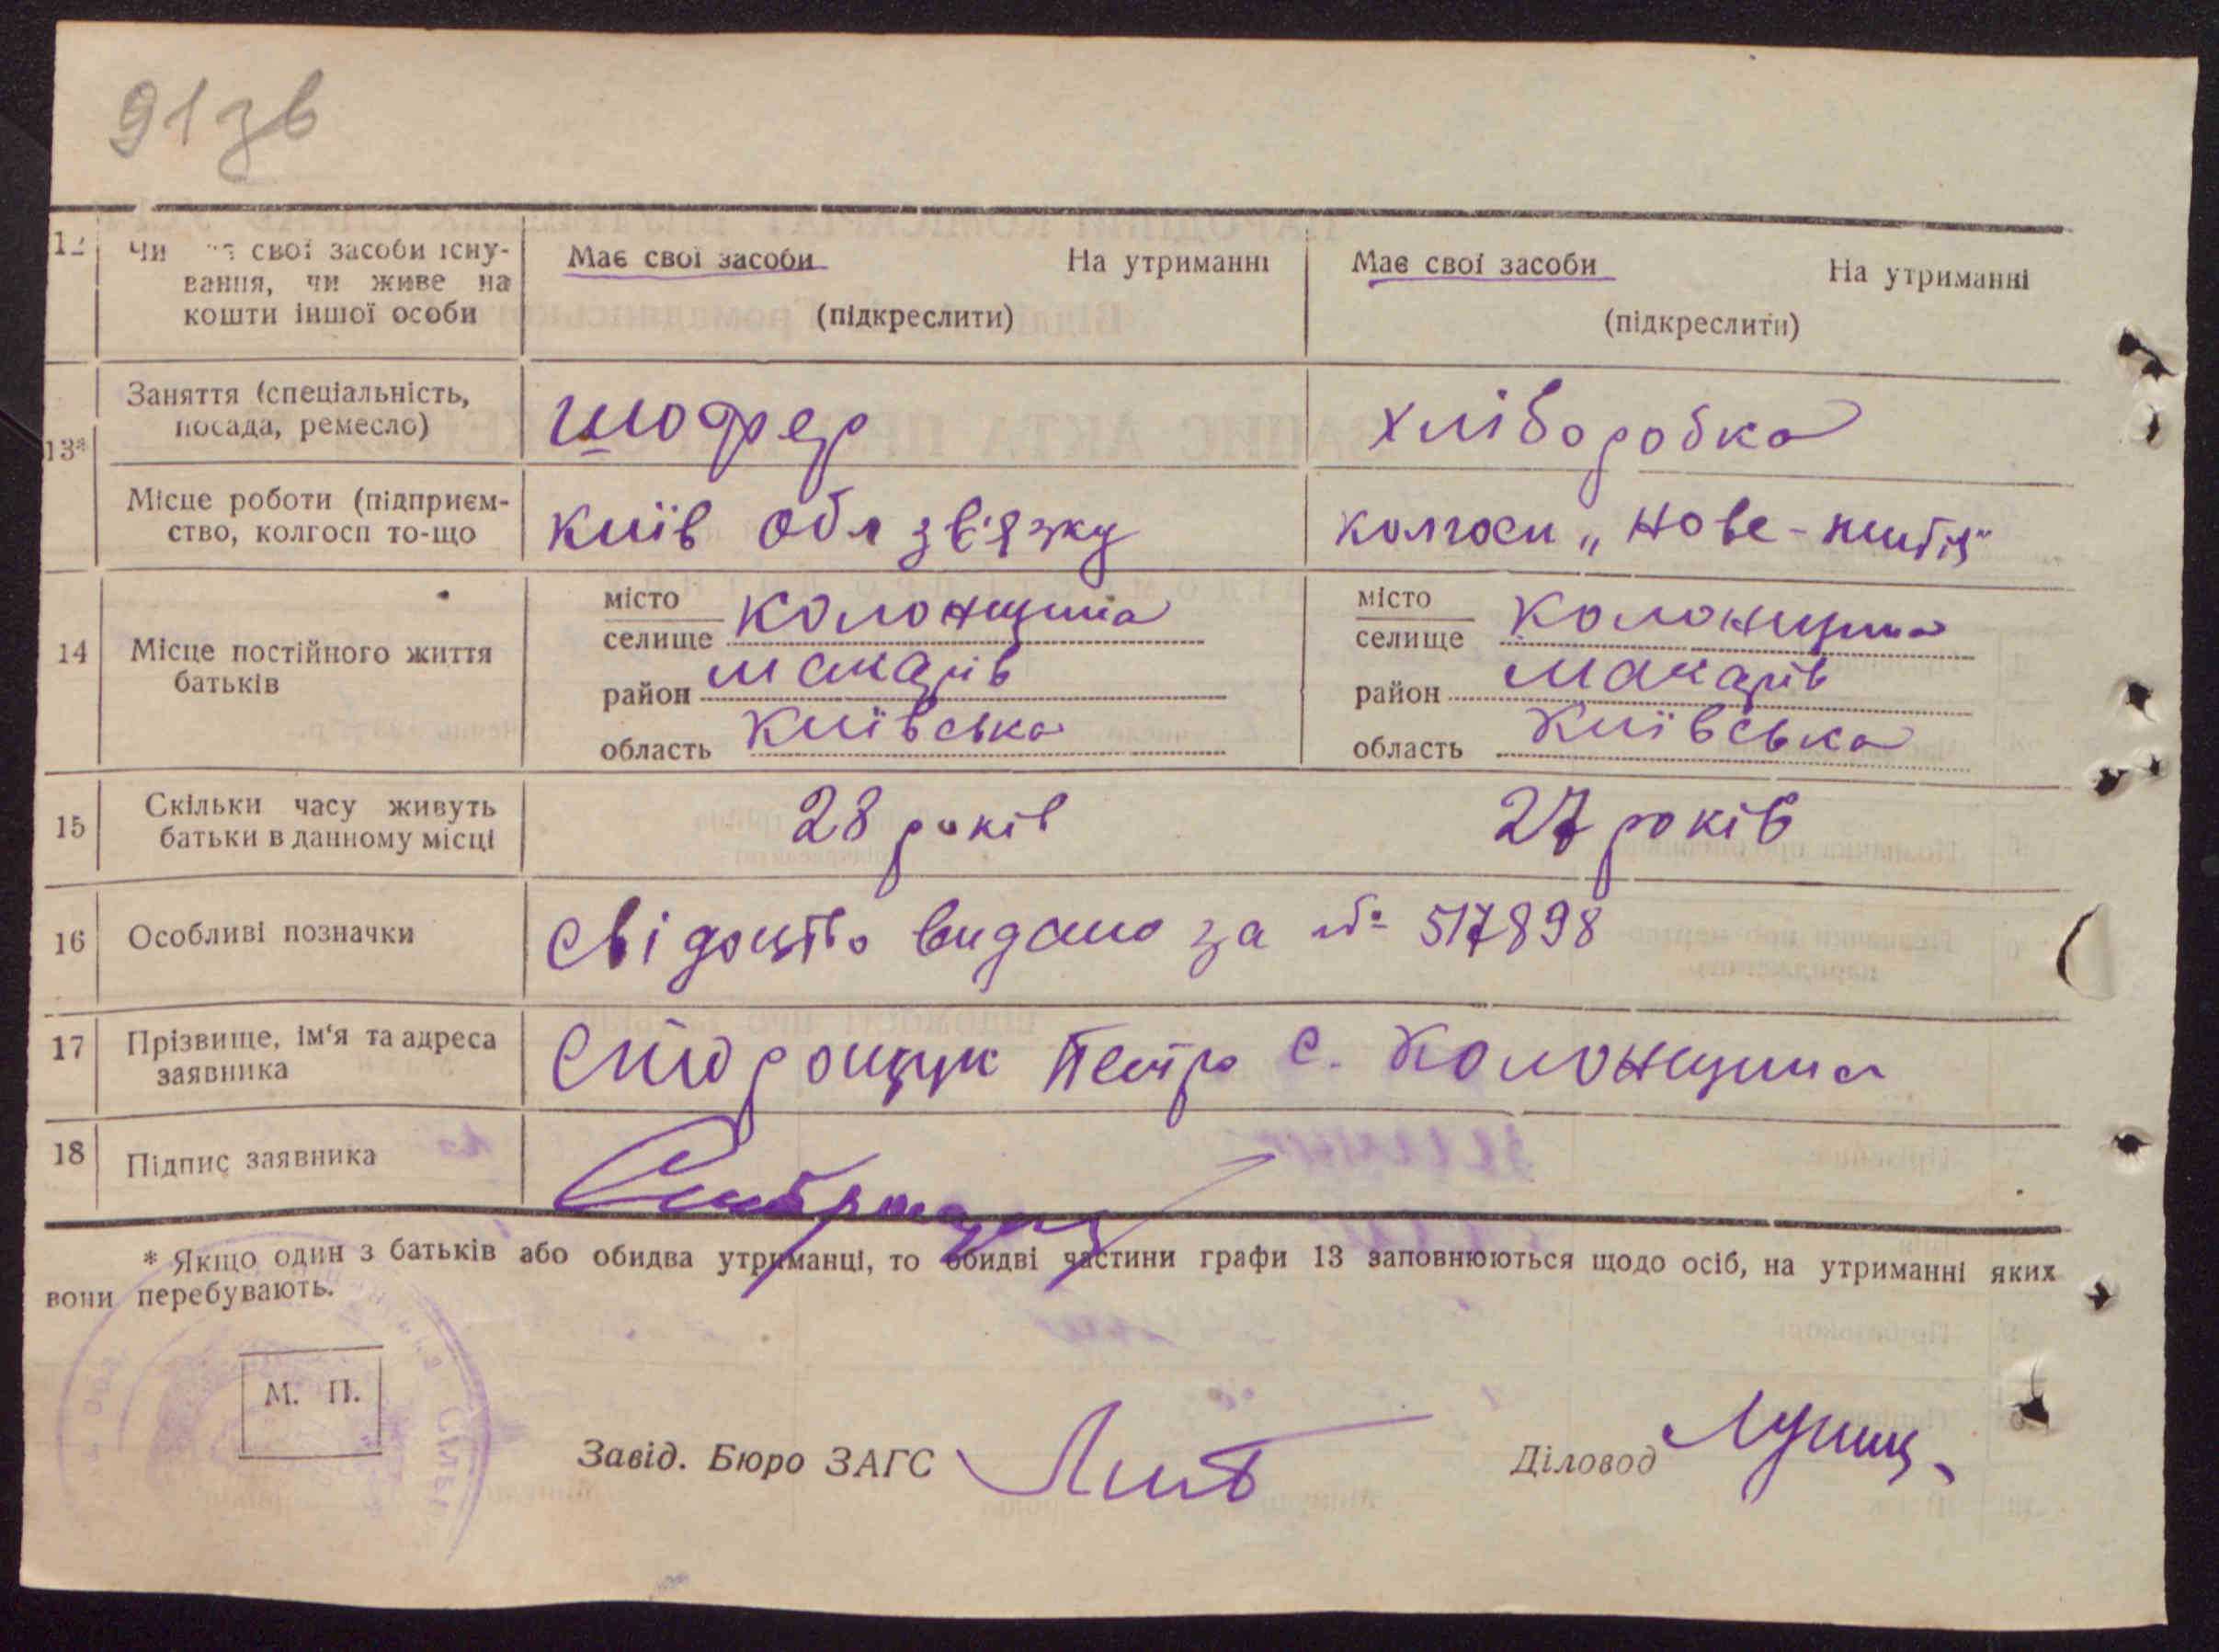 91зв
12 Чи має свої засоби існу- Має свої засоби На утриманні Має свої засоби На утриманні
вання, чи живе на
кошти іншої особи (підкреслити) (підкреслити)
13* Заняття (спеціальність, шофер хліборобка
посада, ремесло)
Місце роботи (підприєм- Київ обл зв'язку колгосп „Нове-життя"
ство, колгосп то-що
14 Місце постійного життя батьків
місто
селище Колонщина
район Макарів
область Київська
місто
селище Колонщина
район Макарів
область Київська
15 Скільки часу живуть 28 років 27 років
батьки в данному місці
16 Особливі позначки свідоцтво видано за № 517898
17 Прізвище, ім'я та адреса Петро с. Колонщина
заявника
18 Підпис заявника
* Якщо один з батьків або обидва утриманці, то обидві частини графи 13 заповнюються щодо осіб, на утриманні яких
вони перебувають.
М. П.
Завід. Бюро ЗАГС
Діловод